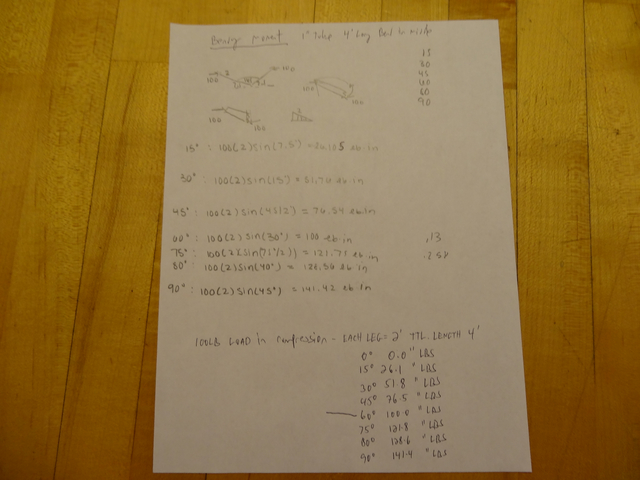 Bending Moment 1" Tube 4' Long Bent to
15
30
45
60
60
90
100 100
100 100
100 100
15° : 100(2)sin(7.5°) = 26.105 lb in
30° : 100(2)sin(15°) = 51.76 lb in
45° : 100(2)sin(45/2) = 76.54 lb in
60° : 100(2)sin(30°) = 100 lb in .13
75° : 100(2)(sin(75/2)) = 121.77 lb in
80° : 100(2)sin(40°) = 128.56 lb in
90° : 100(2)sin(45°) = 141.42 lb in
100LB LOAD in compression - EACH LEG = 2' TTL. LENGTH 4'
0° 0.0 "LBS
15° 26.1 "LBS
30° 51.8 "LBS
45° 76.5 "LBS
60° 100.0 "LBS
75° 121.8 "LBS
80° 128.6 "LBS
90° 141.4 "LBS